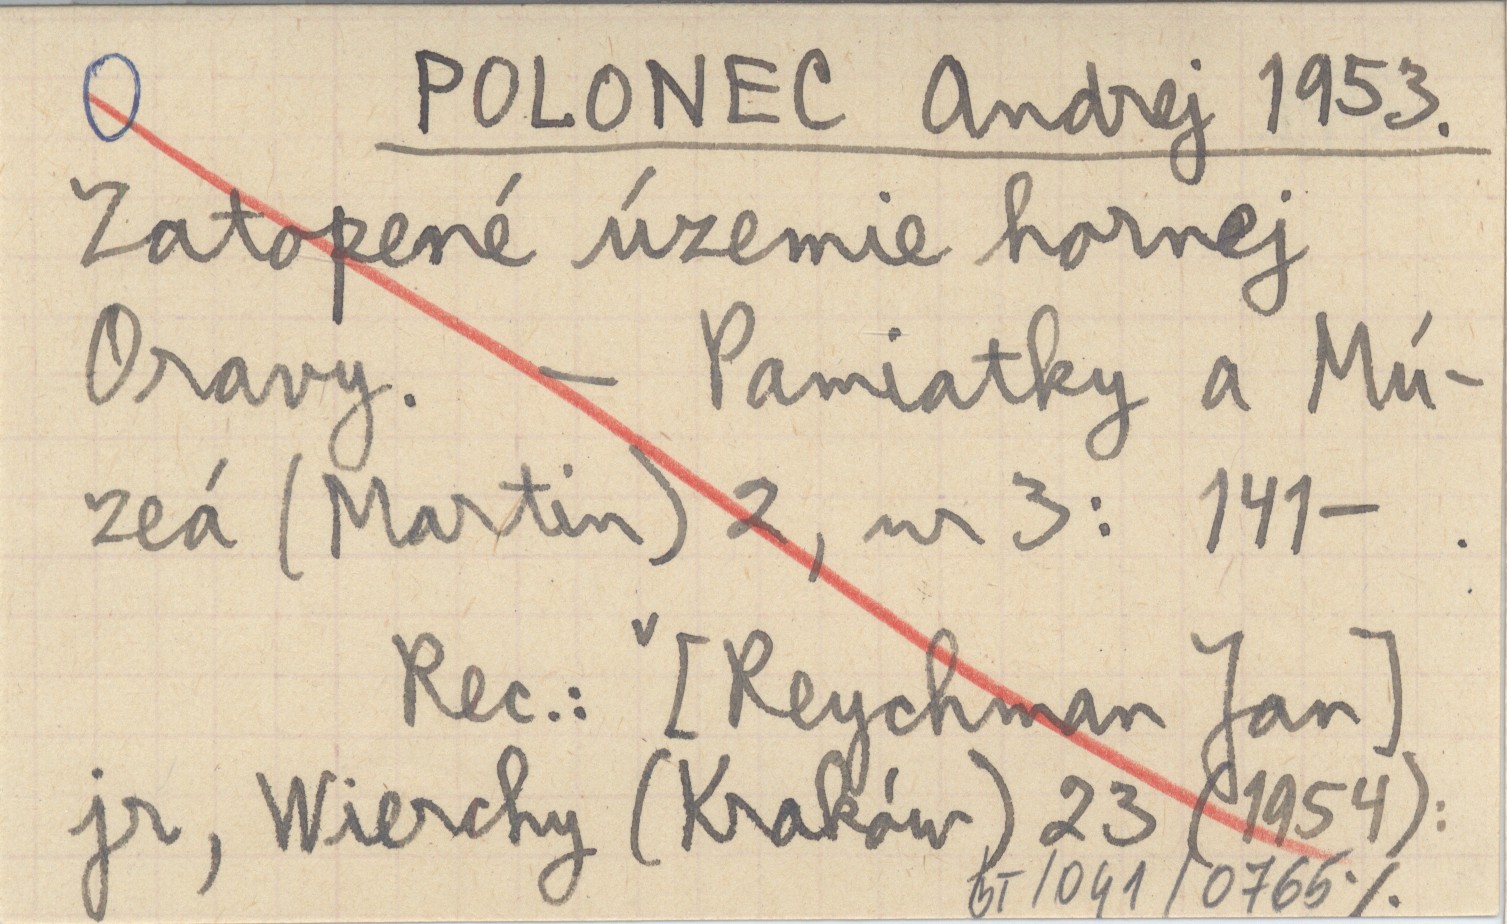 O POLONEC Andrej 1953.
Zatopené územie hornej
Oravy. — Pamiatky a Mú-
zeá (Martin) 2, nr 3: 141— .
Rec.: ˅[Reychman Jan]
jr, Wierchy (Kraków) 23 (1954):
/041/0765 ./.